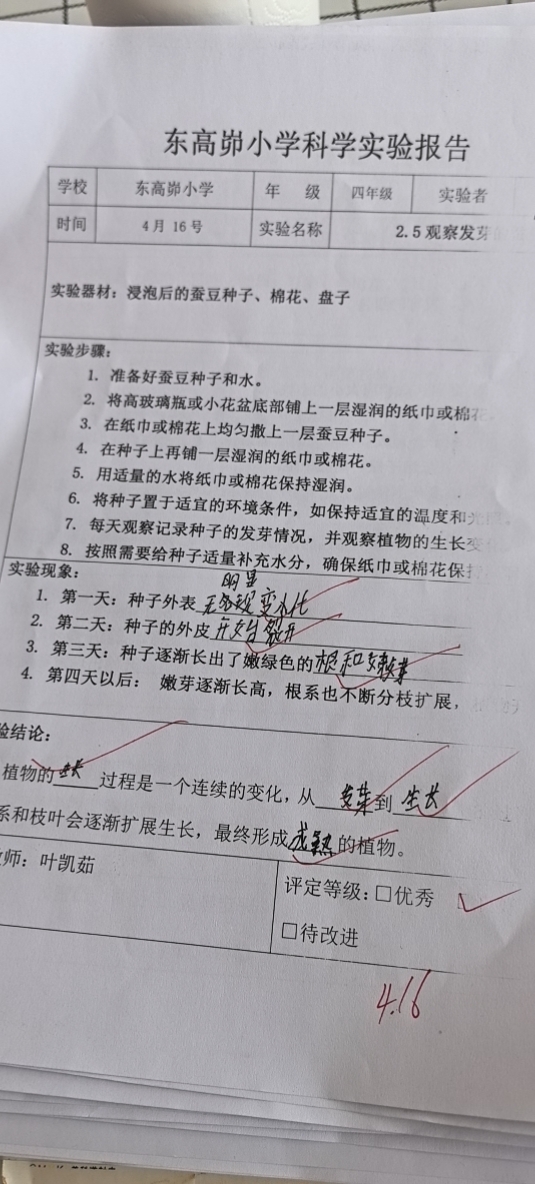 东高峁小学科学实验报告
学校 东高峁小学 年 级 四年级 实验者
时间 4月 16号 实验名称 2.5观察发芽
实验器材：浸泡后的蚕豆种子、棉花、盘子
实验步骤：
1. 准备好蚕豆种子和水。
2. 将高玻璃瓶或小花盆底部铺上一层湿润的纸巾或棉花。
3. 在纸巾或棉花上均匀撒上一层蚕豆种子。
4. 在种子上再铺一层湿润的纸巾或棉花。
5. 用适量的水将纸巾或棉花保持湿润。
6. 将种子置于适宜的环境条件，如保持适宜的温度和光
7. 每天观察记录种子的发芽情况，并观察植物的生长变
8. 按照需要给种子适量补充水分，确保纸巾或棉花保持
实验现象：
明显
1. 第一天：种子外表无 变化
2. 第二天：种子的外皮开始裂开
3. 第三天：种子逐渐长出了嫩绿色的根和嫩芽
4. 第四天以后： 嫩芽逐渐长高，根系也不断分枝扩展，
验结论：
植物的生长过程是一个连续的变化，从发芽到生长
系和枝叶会逐渐扩展生长，最终形成成熟的植物。
师：叶凯茹
评定等级：□优秀
□待改进
4.16